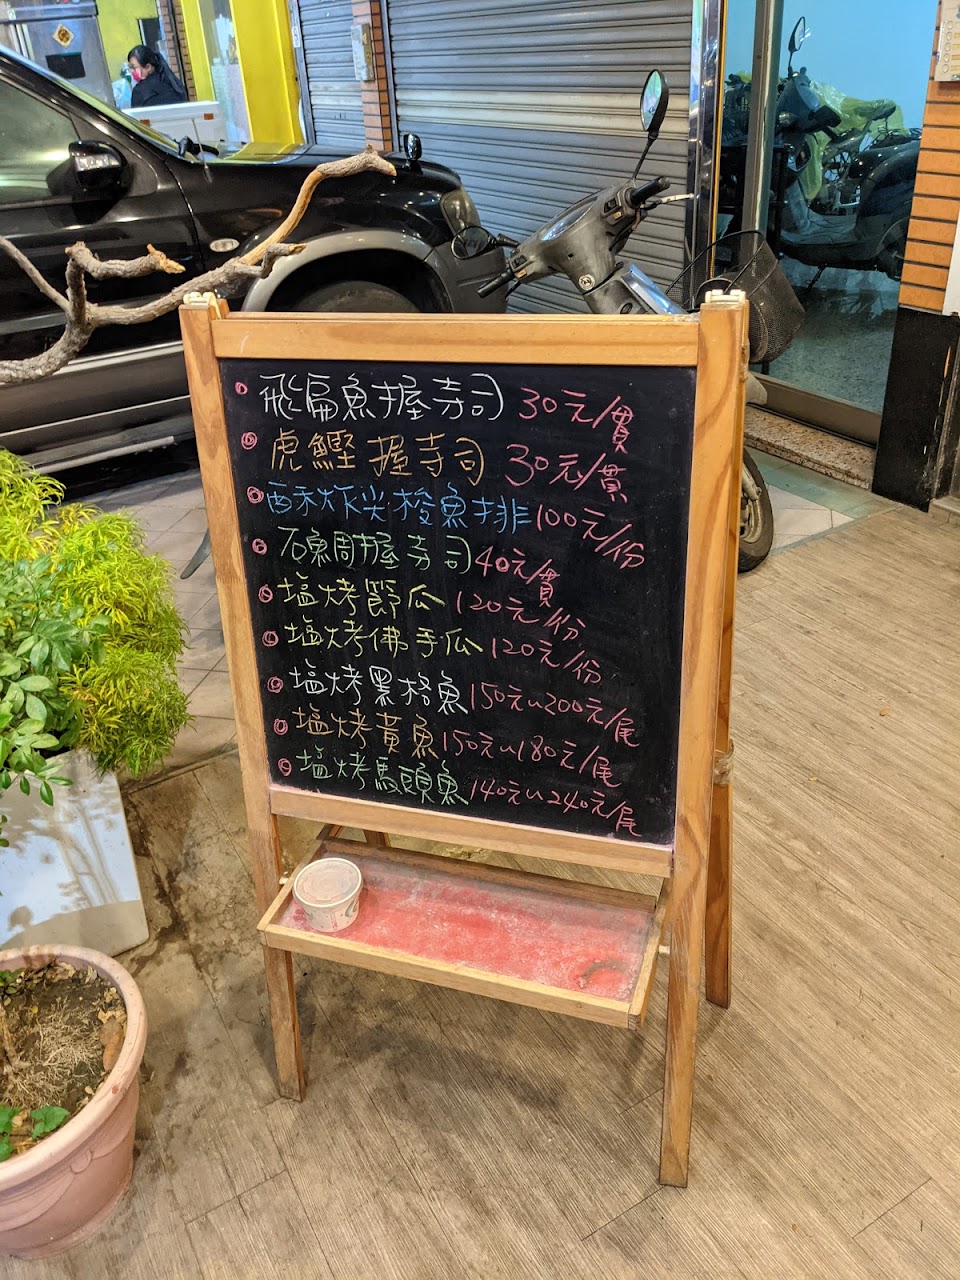 飛扁魚握寿司 30元/貫
虎鰹握寿司 30元/貫
酥炸尖梭魚排 100元/份
石鯛握寿司 40元/貫
塩烤節瓜 120元/份
塩烤佛手瓜 120元/份
塩烤黑格魚 150元~200元/尾
塩烤黃魚 150元~180元/尾
塩烤馬頭魚 140元~240元/尾